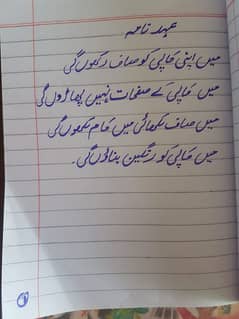 عہد نامہ
میں اپنی کاپی کو صاف رکھوں گی
میں کاپی کے صفحات نہیں پھاڑوں گی
میں صاف لکھائی میں کام لکھوں گی
میں کاپی کو رنگین بناؤں گی۔